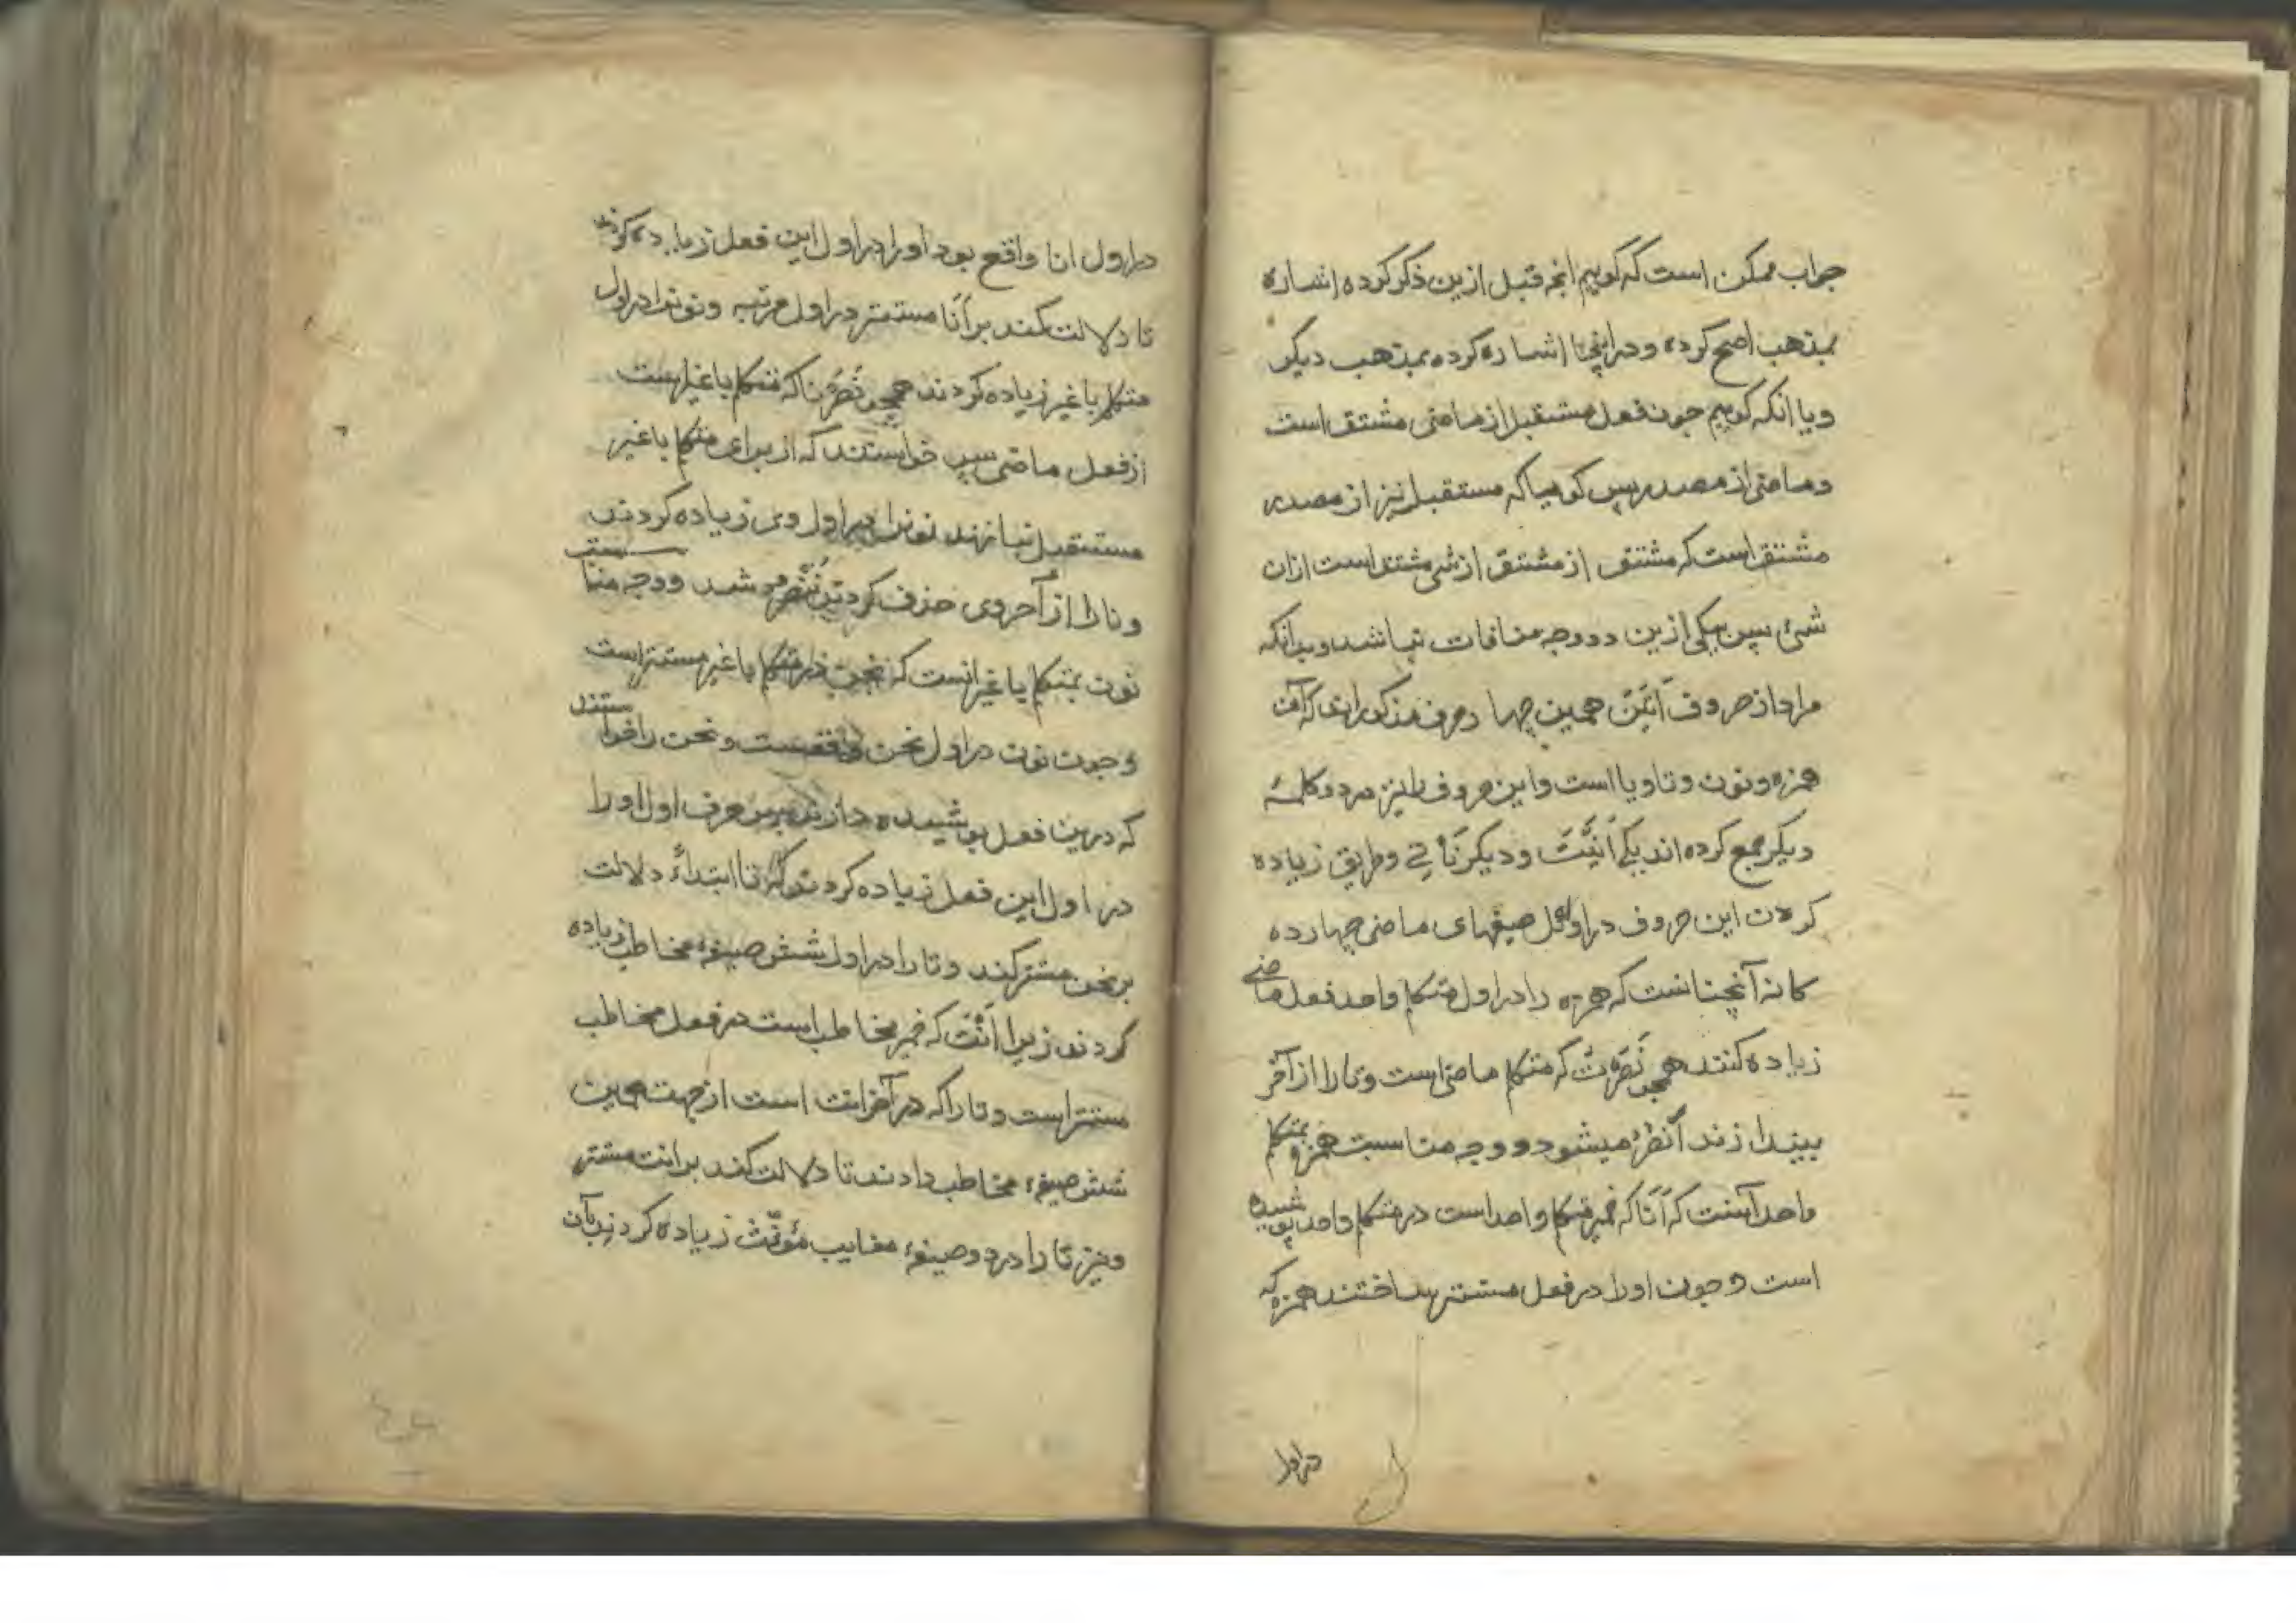 جواب ممکن است که گوییم انچه قبل ازین ذکر کرده اشاره
بمذهب اصح کرده و دراینجا اشاره کرده بمذهب دیکر
و یا انکه کوییم چون فعل مستقبل از ماضی مشتق است
و ماضی از مصدر پس کوییا که مستقبل نیز از مصدر
مشتق است که مشتق از مشتق از شی مشتق است ازان
شئ پس بیکی ازین دو وجه منافات نباشد و بدانکه
مراد از حروف اَتَیْنَ همین چهار حرف مذکوراند که آن
همزه و نون و تا و یا است و این حروف را نیز در دو کلمهٔ
دیکر جمع کرده اند یکی اَنَیْتَ و دیکر نَأْتِے و طریق زیاده
کردن این حروف در اول صیغهای ماضی چهارده
کانه آنچنانست که همزه را در اول متکلم واحد فعل ماضے
زیاده کنند همچو نَصَرْتُ که متکلم ماضی است و تا را از آخر
بیندازند اَنْصُرُ میشود و وجه مناسبت همزه بمتکلم
واحد آنست که اَنَا که ضمیر متکلم واحد است در متکلم واحد پوشیده
است و چون او را در فعل مستتر ساختند همزه که
در اول
در اول انا واقع بود او را در اول این فعل زیاده کردند
تا دلالت کند بر اَنَا مستتر در اول مرتبه و نون را در اول
متکلم با غیر زیاده کردند همچو نَصَرْنَا که متکلم با غیر است
از فعل ماضی پس خواستند که از برای متکلم با غیر
مستقبل بسازند نون را در اول وی زیاده کردند
و نا را از آخر وی حذف کردند نَنْصُرُ شد و وجه مناسبت
نون بمتکلم با غیر انست که نحن در متکلم با غیر مستتر است
و چون نون در اول نحن واقعست و نحن را خواستند
که درین فعل پوشیده دارند پس حرف اول او را
در اول این فعل زیاده کردند که تا ابتداءً دلالت
بر نحن مستتر کند و تا را در اول شش صیغهٔ مخاطب زیاده
کردند زیرا اَنْتَ که ضمیر مخاطب است در فعل مخاطب
مستتر است و تا را که در آخر انت است از جهت همین
شش صیغهٔ مخاطب دادند تا دلالت کند بر انت مستتر
و نیز تا را در دو صیغهٔ مغایب مؤنّث زیاده کردند بآن